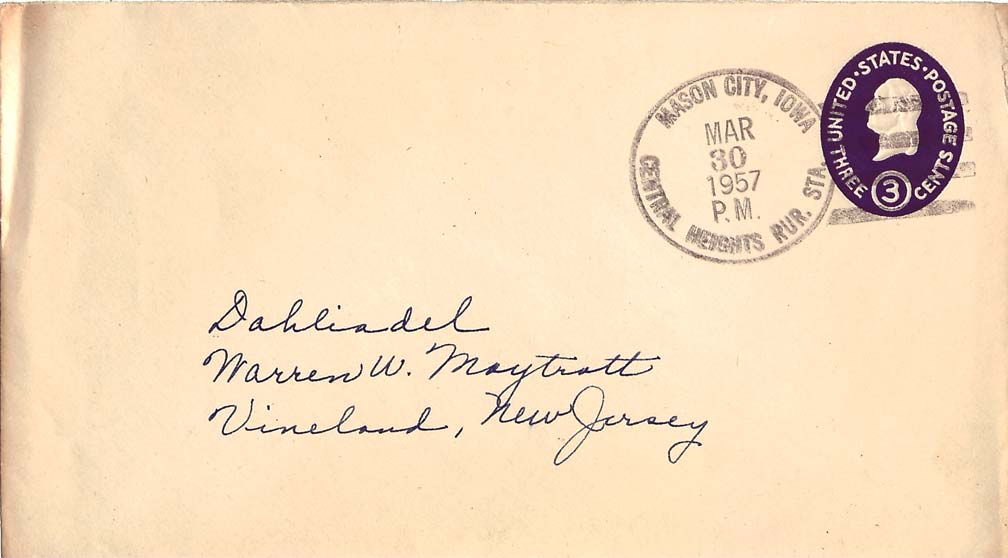 MASON CITY, IOWA
MAR
30
1957
P.M.
CENTRAL HEIGHTS RUR. STA.
UNITED·STATES·POSTAGE
THREE 3 CENTS
Dahliadel
Warren W. Maytrott
Vineland, New Jersey